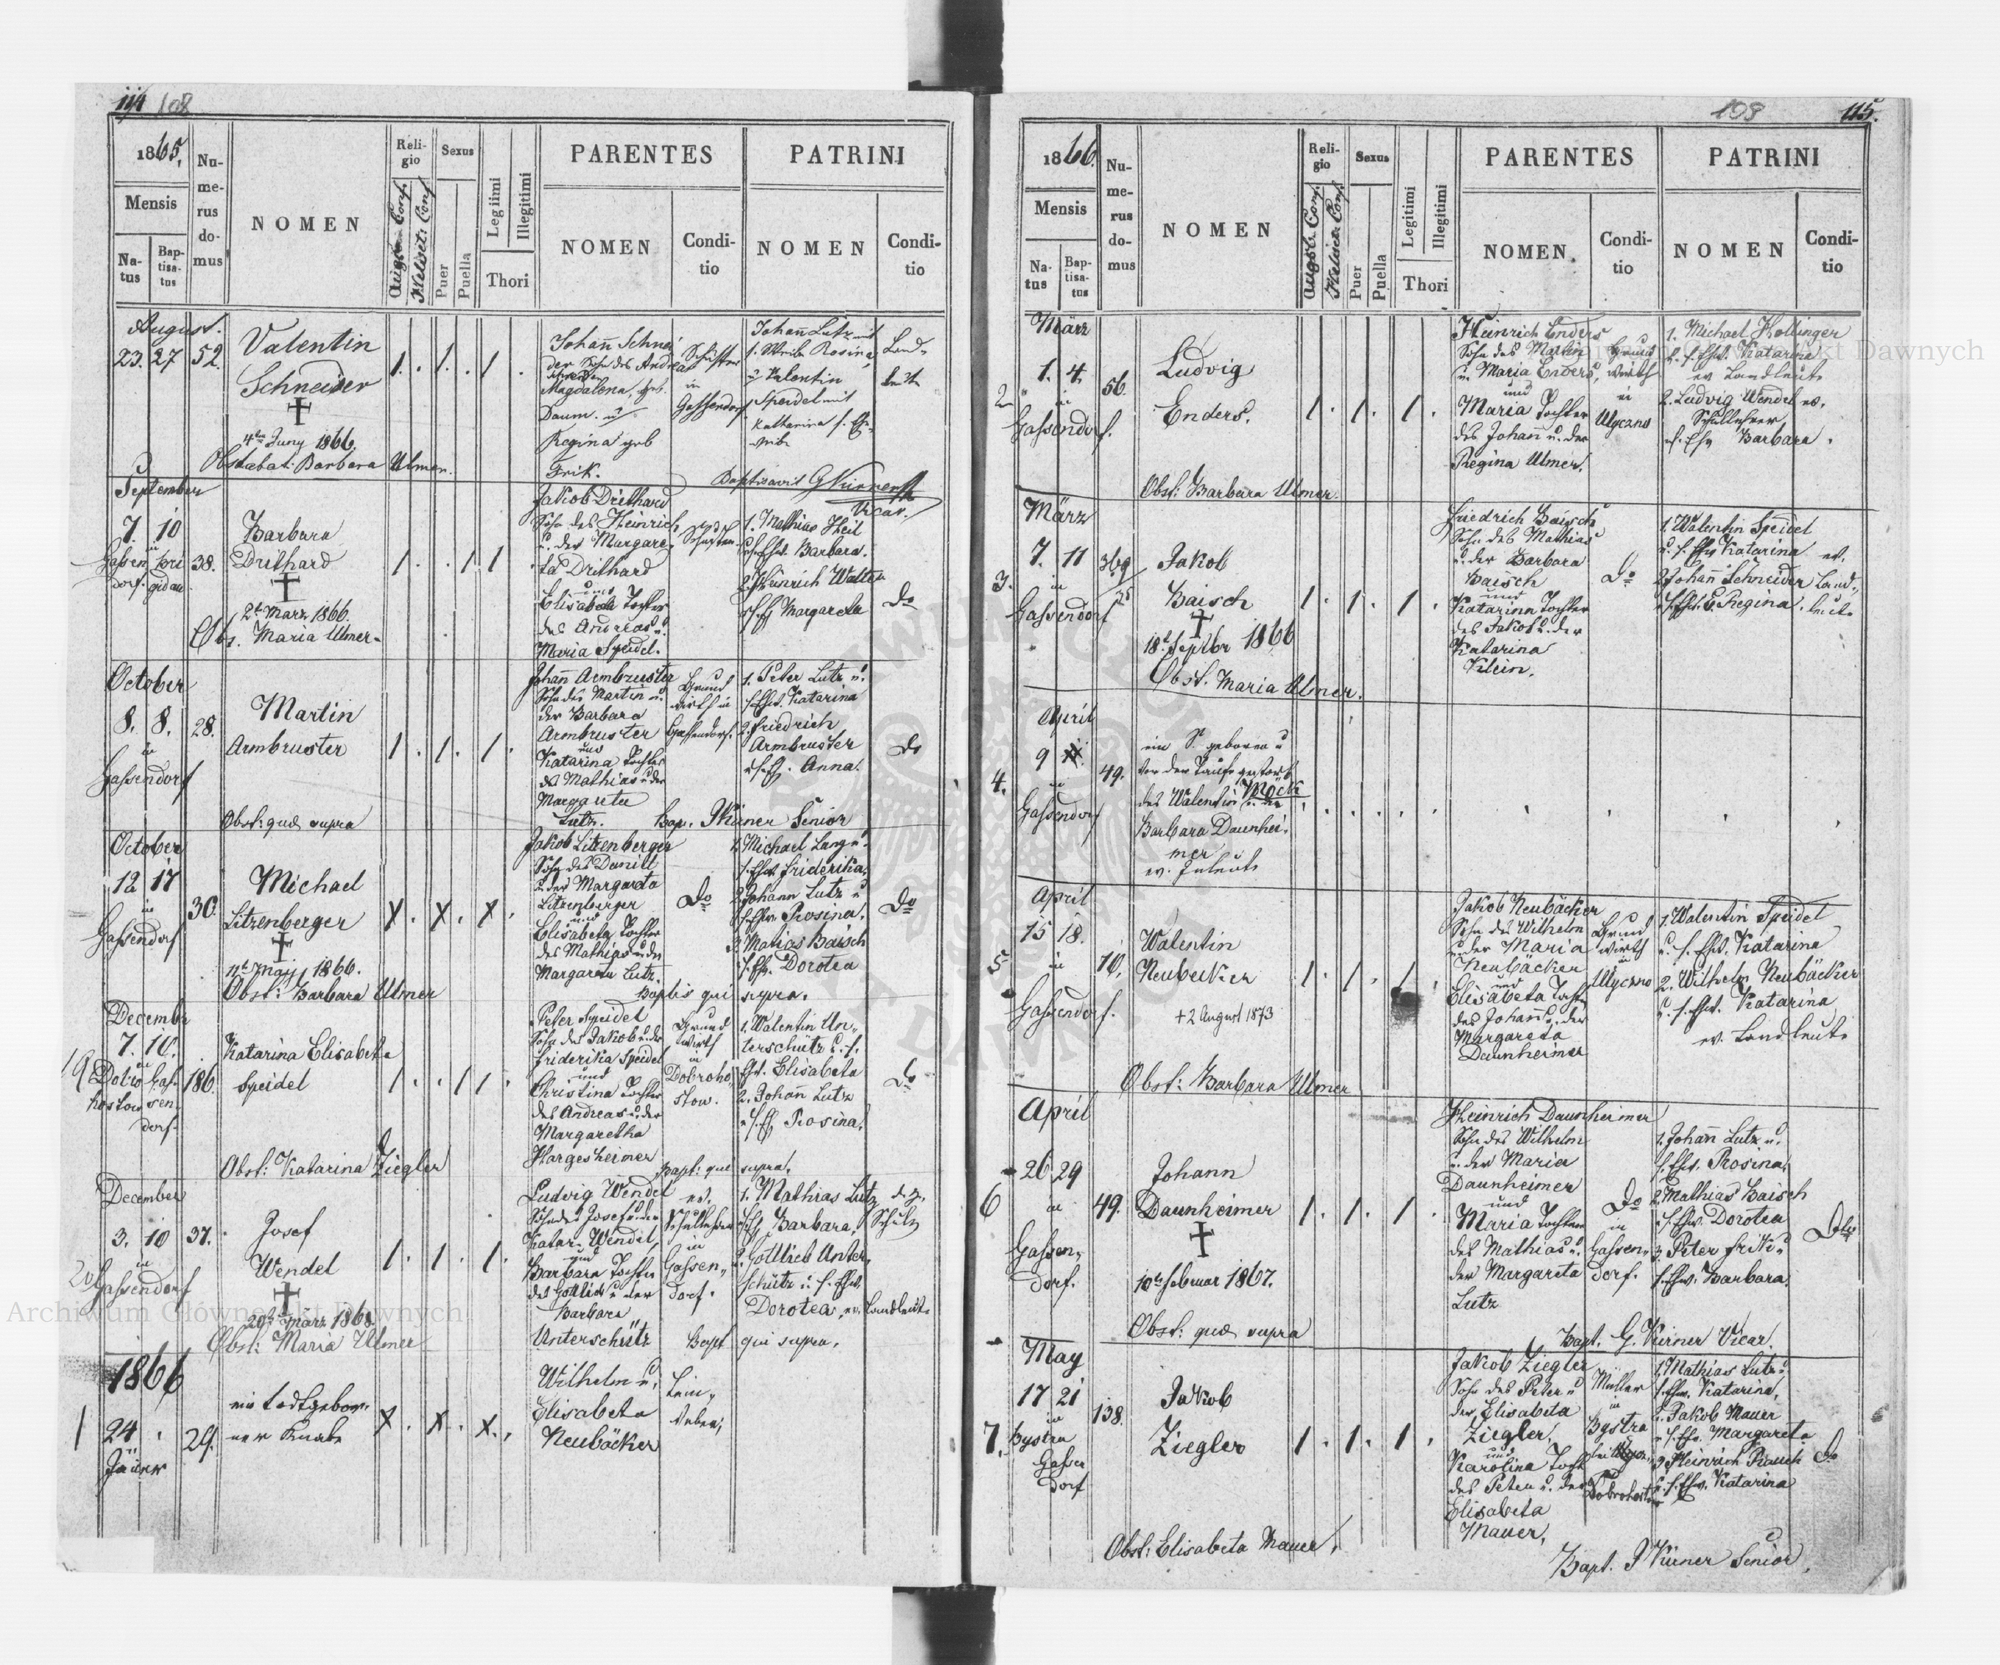 114 108
1865.
Mensis
Natus
Baptisatus
Numerus domus
NOMEN
Religio
Augsb. Conf.
Helvet. Conf.
Sexus
Puer
Puella
Legiimi
Illegitimi
Thori
PARENTES
NOMEN
Conditio
PATRINI
NOMEN
Conditio
August.
23. 27 52.
Valentin
Schneider
†
4ten Juny 1866.
Obstabat: Barbara Ulmer.
Johann Schnei
der Sohn des Andreas
Magdalena, geb.
Daum. u
Regina geb
Frik.
Schuster
in
Gassendorf
Johann Lutz mit
s. Weibe Rosina,
u Valentin
Speidel mit
Katharina s. Eh.
weibe
Land-
leute
Baptisavit G Kirner
Vicar.
September
7. 10
38.
Barbara
Drithard
†
2t März 1866.
Obs. Maria Ulmer.
Jakob Drithard
Sohn des Heinrich
u. der Margare-
ta Drithard
und
Elisabeta Tochter
des Andreas u.
Maria Speidel.
1. Mathias Heil
u. s. Ehw. Barbara.
2. Heinrich Walter
Margareta
Do
October
8. 8.
in
Gassendorf
28.
Martin
Armbruster
Obst: quæ supra
Johann Armbruster
Sohn des Martin u.
der Barbara
Armbruster
und
Katarina Tochter
des Mathias u der
Margareta
Lutz.
Grund
wirth in
Gassendorf.
1. Peter Lutz u.
s. Ehw. Katarina
2. Friedrich
Armbruster
Anna.
Do
Bap. Kirner Senior
October
12 17
in
Gassendorf
30.
Michael
Litzenberger
†
1866.
Obst: Barbara Ulmer
Jakob Litzenberger
Sohn des Daniel
u. der Margareta
Litzenberger
und
Elisabeta Tochter
des Mathias u der
Margareta Lutz.
Do
1. Michael Lang u.
s. Ehw. Friderika,
2. Johann Lutz u
s. Ehw. Rosina,
3. Matias Baisch
s. Ehw. Dorotea
Do
Baptis qui supra.
Decembr
7. 10.
19
Dobrohostow
Gassendorf.
186.
Katarina Elisabeta
Speidel
Obst: Katarina Ziegler
Peter Speidel
Sohn des Jakob u. der
Friderika Speidel
und
Christina Tochter
des Andreas u. der
Margaretha
Hargesheimer
Grund
wirth
in
Dobroho-
stow.
1. Walentin Un-
terschütz u. s.
Ehw. Elisabeta
2. Johann Lutz
Rosina,
Do
Bapt: qui supra.
December
3. 10
20
in
Gassendorf
37.
Josef
Wendel
†
20t März 1868
Obst: Maria Ulmer
Ludvig Wendel
Sohn des Josef u. der
Katar. Wendel,
und
Barbara Tochter
des Gottlieb u der
Barbara
Unterschütz
ev.
Schullehrer
in
Gassen-
dorf.
1. Mathias Lutz
Barbara,
2. Gottlieb Unter-
schütz u. s. Ehw.
Dorotea, ev. Landleute
d. z.
Schulz
Bapt qui supra.
1866
1 24
Jäner
29.
ein todtgebor-
ner Knabe
Wilhelm u.
Elisabeta
Neubäcker
Lein-
weber,
108 115.
1866.
Mensis
Natus
Baptisatus
Numerus domus
NOMEN
Religio
Augsb. Conf.
Helvet. Conf.
Sexus
Puer
Puella
Legitimi
Illegitimi
Thori
PARENTES
NOMEN.
Conditio
PATRINI
NOMEN
Conditio
März
1. 4.
2
in
Gassendorf.
56.
Ludvig
Enders.
Obst: Barbara Ulmer
Heinrich Enders
Sohn des Martin
u. Maria Enders,
und
Maria Tochter
des Johann u. der
Regina Ulmer.
Grund
wirth
in
Ugczno
1. Michael Hollinger
u. s. Ehw. Katarina
ev Landleute
2. Ludvig Wendel ev.
Schullehrer
Barbara.
März
7. 11
3.
in
Gassendorf
Jakob
Baisch
†
18t Septbr 1866
Obst. Maria Ulmer.
Friedrich Baisch
Sohn des Mathias
u. der Barbara
Baisch
und
Katarina Tochter
des Jakob u. der
Katarina
Klein.
Do
1. Walentin Speidel
u. s. Ehw Katarina ev.
2. Johann Schneider Land-
Regina. leute
April
9
4.
in
Gassendorf
49.
ein S. geboren u
vor der Taufe gestorb
des Walentin Möck
u der
Barbara Daunhei-
mer
April
15 18.
5
in
Gassendorf.
10.
Walentin
Neubecker
+ 2 August 1873
Obst: Barbara Ulmer
Jakob Neubäcker
Sohn des Wilhelm
u der Maria
Neubäcker
und
Elisabeta Tocht
des Johann u. der
Margareta
Daunheimer
Grund
wirth
in
Ugczno
1. Walentin Speidel
u. s. Ehw. Katarina
2. Wilhelm Neubäcker
u. s. Ehw. Katarina
ev. Landleute
April
26 29
6
in
Gassen-
dorf.
49.
Johann
Daunheimer
†
10te Februar 1867.
Obst: quæ supra
Heinrich Daunheimer
Sohn des Wilhelm
u. der Maria
Daunheimer
und
Maria Tochter
des Mathias u.
der Margareta
Lutz
Do
in
Gassen-
dorf.
1. Johann Lutz u.
s. Ehw. Rosina,
2. Mathias Baisch
s. Ehw. Dorotea
3. Peter Frik u
s. Ehw. Barbara.
Bapt. G. Kirner Vicar.
May
17 21
7.
in
Bystra
Gassen
dorf
138.
Jakob
Ziegler
Obst: Elisabeta Mauer,
Jakob Ziegler
Sohn des Peter u
der Elisabeta
Ziegler,
und
Karolina Tocht
des Peter u. der
Elisabeta
Mauer,
Müller
in
Bystra
1. Mathias Lutz u
s. Ehw. Katarina,
2. Jakob Mauer
u. s. Ehw. Margareta
3. Heinrich Rauch
u. s. Ehw. Katarina
Do
Bapt. Kirner Senior,
Archiwum Główne Akt Dawnych
Archiwum Główne Akt Dawnych